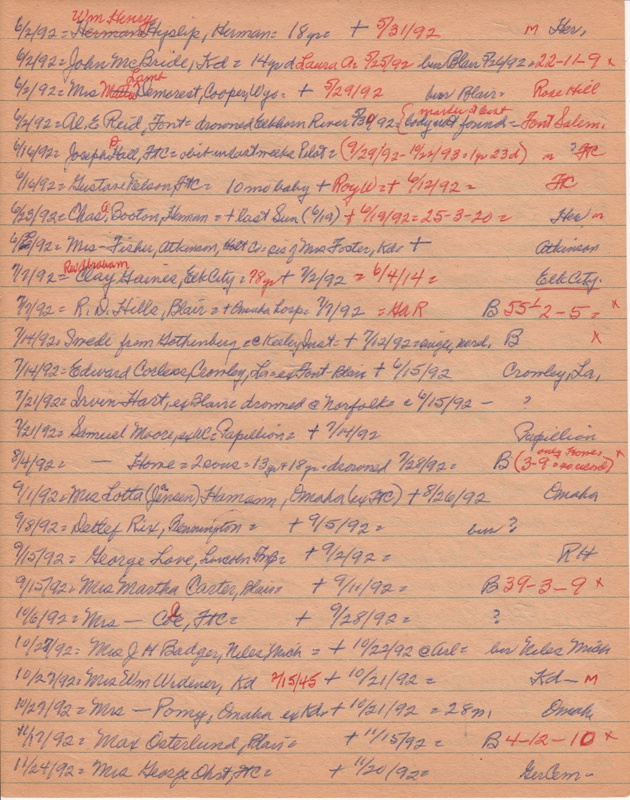 Wm Henry
6/2/92 = Herman Hyslip, Herman = 18 yr = + 5/31/92 m Her,
6/2/92 = John McBride, Kd = 14 yr d Laura A = 5/25/92 bur Blair 5/26/92 = 22-11-9 x
Lamt
6/2/92 = Mrs Demorest, Cooper, Wyo = + 5/29/92 bur Blair = Rose Hill
murder & bur
6/2/92 = Al. E Reid, Font = drowned Elkhorn River 5/30/92 (body not found = Font Salem.
6/16/92 = Joseph Hall, FtC = obit in last weeks Pilot = (9/29/92 - 10/22/93 = 1 yr 23 d) m ? FtC
6/16/92 = Gustave Nelson, FtC = 10 mo baby + Roy W = + 6/12/92 = FtC
6/23/92 = Chas. A Booton, Herman = + last Sun (6/19) + 6/19/92 = 25-3-20 = Her m
Mrs - Fisher, Atkinson, Holt Co = sis of Mrs Foster, Kd = + Atkinson
Rev Abraham
7/7/92 = Clay Haines, Elk City = 78 yr + 7/2/92 = 6/4/14 = Elk City.
7/7/92 = R. D. Hills, Blair = + Omaha hosp = 7/7/92 = GAR B 55 1-2-5 = x
7/14/92 = Swede from Gothenburg, @ Keeley Inst = + 7/12/92 = B x
7/14/92 = Edward Corless, Crowley, La = ex Font-Blair + 6/15/92 Crowley, La,
7/21/92 = Irvin Hart, ex Blair = drowned @ Norfolk = 6/15/92 - ?
7/21/92 = Samuel Moore, = Papillion = + 7/14/92 Papillion
8/4/92 = - Home = 2 sons = 13 yr + 18 yr = drowned 7/28/92 = B (only Homes 3-9 = no record) x
9/1/92 = Mrs Lotta (Jensen) Hamann, Omaha (ex FtC) + 8/26/92 Omaha
9/8/92 = Detlef Rix, Bennington = + 9/5/92 = bur ?
9/15/92 = George Love, Lincoln Hosp = + 9/2/92 = RH
9/15/92 = Mrs Martha Carter, Blair = + 9/11/92 = B 39-3-9 x
10/6/92 = Mrs - Coe, FtC = + 9/28/92 = ?
10/27/92 = Mrs J H Badger, Niles, Mich = + 10/22/92 @ Arl = bur Niles Mich
10/27/92 = Mrs Wm Widener, Kd 2/15/45 + 10/21/92 = Kd - M
10/27/92 = Mrs - Pomy, Omaha ex Kd = + 10/21/92 = 28 yr, Omaha
11/17/92 = Max Osterlund, Blair = + 11/15/92 = B 4-12-10 x
11/24/92 = Mrs George Ohrt, FtC = + 11/20/92 = Ger Cem -